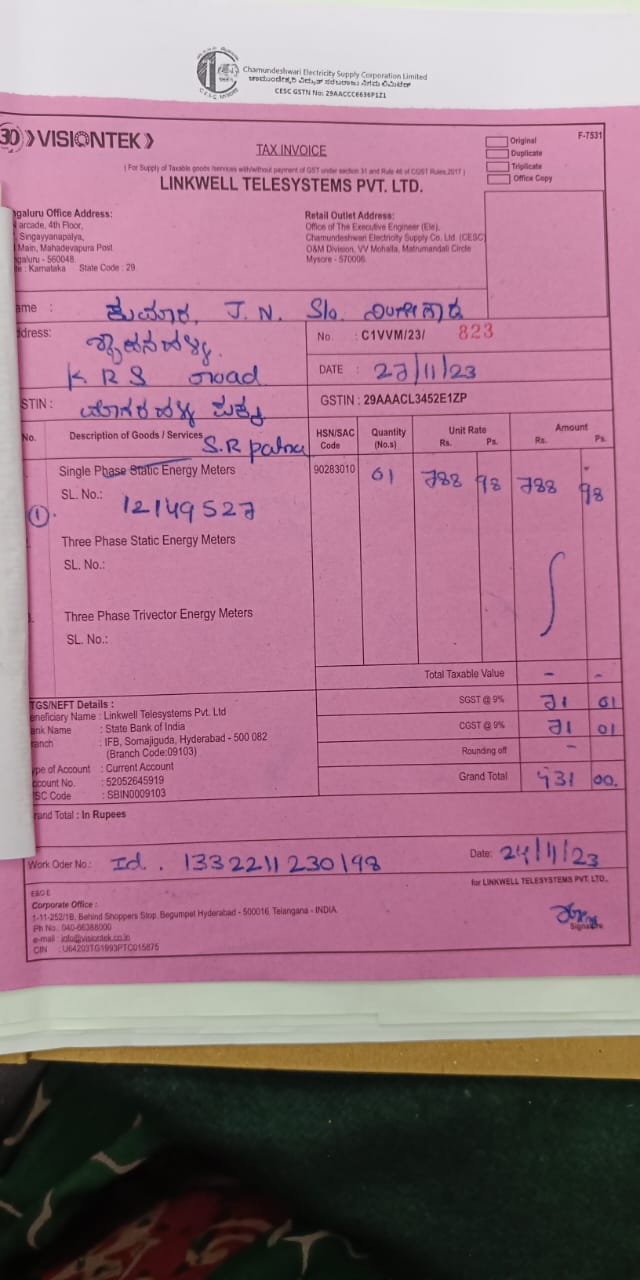 Chamundeshwari Electricity Supply Corporation Limited
ಚಾಮುಂಡೇಶ್ವರಿ ವಿದ್ಯುತ್ ಸರಬರಾಜು ನಿಗಮ ಲಿಮಿಟೆಡ್
CESC GSTN No: 29AACCC6636P1ZL
30 VISIONTEK
TAX INVOICE
Original
Duplicate
Triplicate
Office Copy
F-7531
(For Supply of Taxable goods /services with/without payment of GST under section 31 and Rule 46 of CGST Rules,2017)
LINKWELL TELESYSTEMS PVT. LTD.
galuru Office Address:
arcade, 4th Floor,
Singayyanapalya,
Main, Mahadevapura Post
galuru - 560048.
te : Karnataka State Code : 29
Retail Outlet Address:
Office of The Executive Engineer (Ele),
Chamundeshwari Electricity Supply Co. Ltd. (CESC)
O&M Division, VV Mohalla, Matrumandali Circle
Mysore - 570006.
ame : ಕುಮಾರ. J. N. S/o.
dress:
K R S road
No. : C1VVM/23/ 823
DATE : 27/11/23
STIN :
GSTIN : 29AAACL3452E1ZP
No. Description of Goods / Services HSN/SAC Code Quantity (No.s) Unit Rate Rs. Ps. Amount Rs. Ps.
S.R patna
Single Phase Static Energy Meters 90283010 01 788 98 788 98
SL. No.: 12149527
1.
Three Phase Static Energy Meters
SL. No.:
Three Phase Trivector Energy Meters
SL. No.:
Total Taxable Value - -
SGST @ 9% 71 01
CGST @ 9% 71 01
Rounding off -
Grand Total 931 00.
TGS/NEFT Details :
eneficiary Name : Linkwell Telesystems Pvt. Ltd
ank Name : State Bank of India
ranch : IFB, Somajiguda, Hyderabad - 500 082
(Branch Code:09103)
ype of Account : Current Account
ccount No. : 52052645919
SC Code : SBIN0009103
rand Total : In Rupees
Work Oder No.: Id. 1332211230198
Date: 24/11/23
for LINKWELL TELESYSTEMS PVT. LTD.
E&O E
Corporate Office :
1-11-252/1B, Behind Shoppers Stop, Begumpet Hyderabad - 500016, Telangana - INDIA
Ph No. 040-66388000
e-mail : info@visiontek.co.in
CIN : U64203TG1993PTC015875
Signature